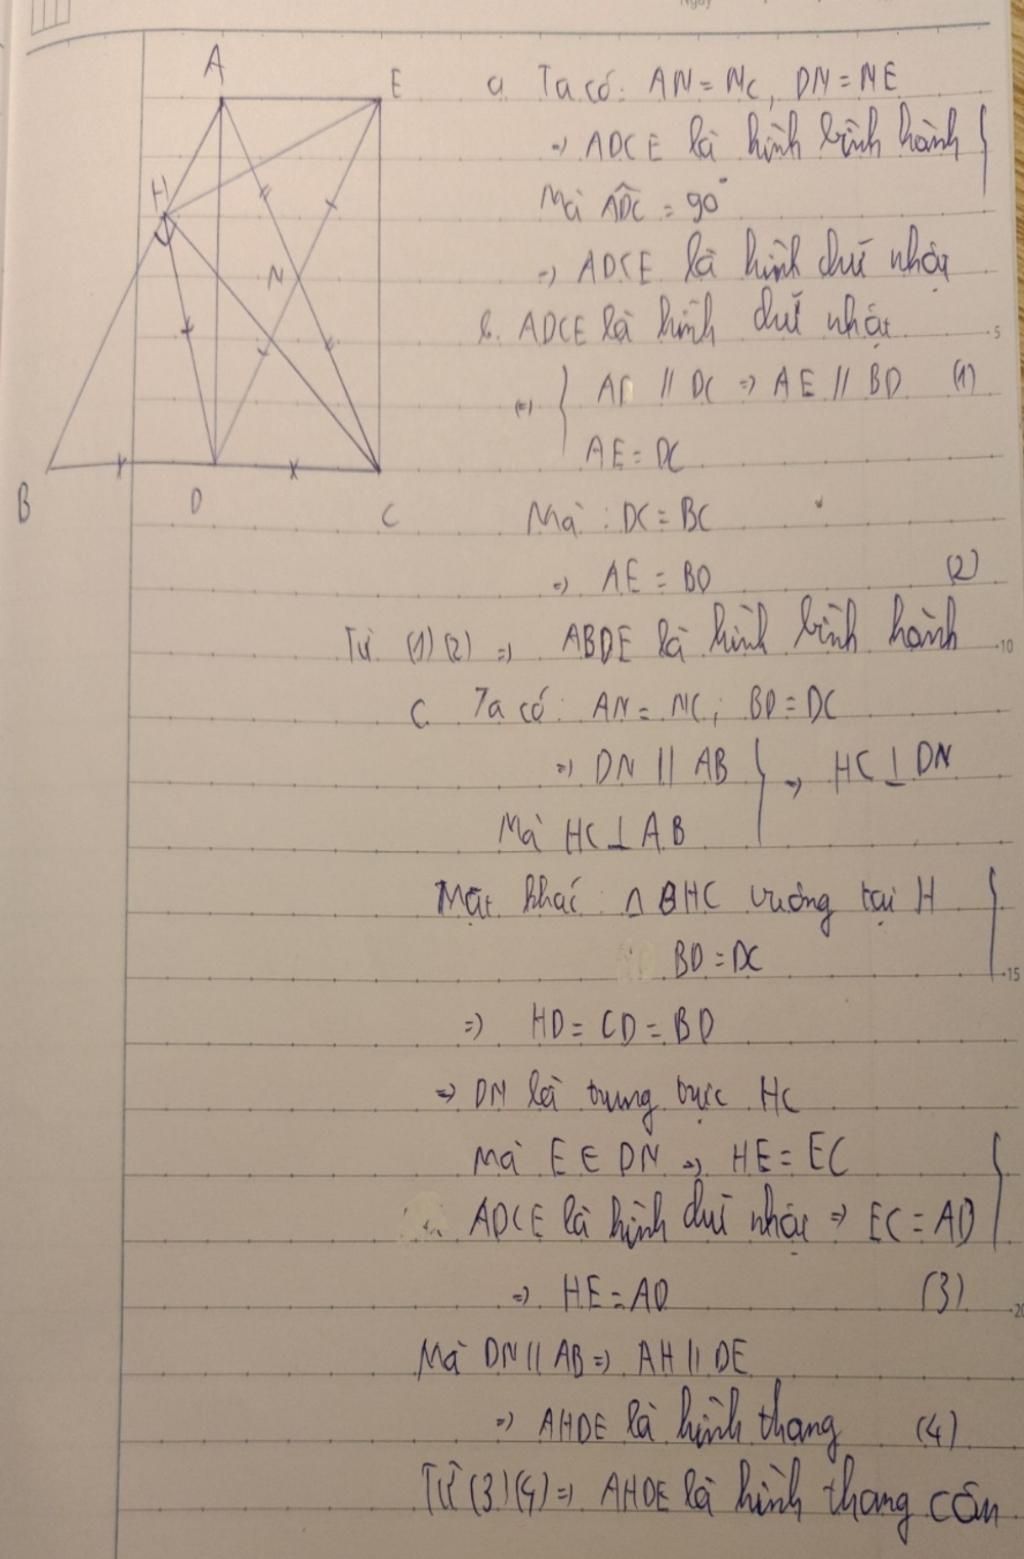 Ngày
A
E
H
N
B
D
C
a. Ta có: AN = NC, DN = NE
=> ADCE là hình bình hành
Mà ADC = 90°
=> ADCE là hình chữ nhật
b. ADCE là hình chữ nhật
5
=> AE // DC => AE // BD (1)
AE = DC
Mà: DC = BC
=> AE = BD (2)
Từ (1) (2) => ABDE là hình bình hành
10
c Ta có: AN = NC; BD = DC
=> DN // AB => HC ⊥ DN
Mà HC ⊥ AB
Mặt khác: Δ BHC vuông tại H
BD = DC
15
=> HD = CD = BD
=> DN là trung trực HC
Mà E ∈ DN => HE = EC
ADCE là hình chữ nhật => EC = AD
=> HE = AD (3)
20
Mà DN // AB => AH // DE
=> AHDE là hình thang (4)
Từ (3) (4) => AHDE là hình thang cân